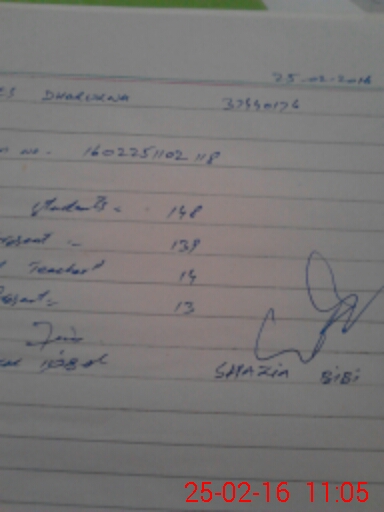 25-02-2016
DHARUKNA 37340176
no. 1602251102118
students - 148
present - 139
Teachers 14
Present - 13
iqbal
SHAZIA BiBi
25-02-16 11:05